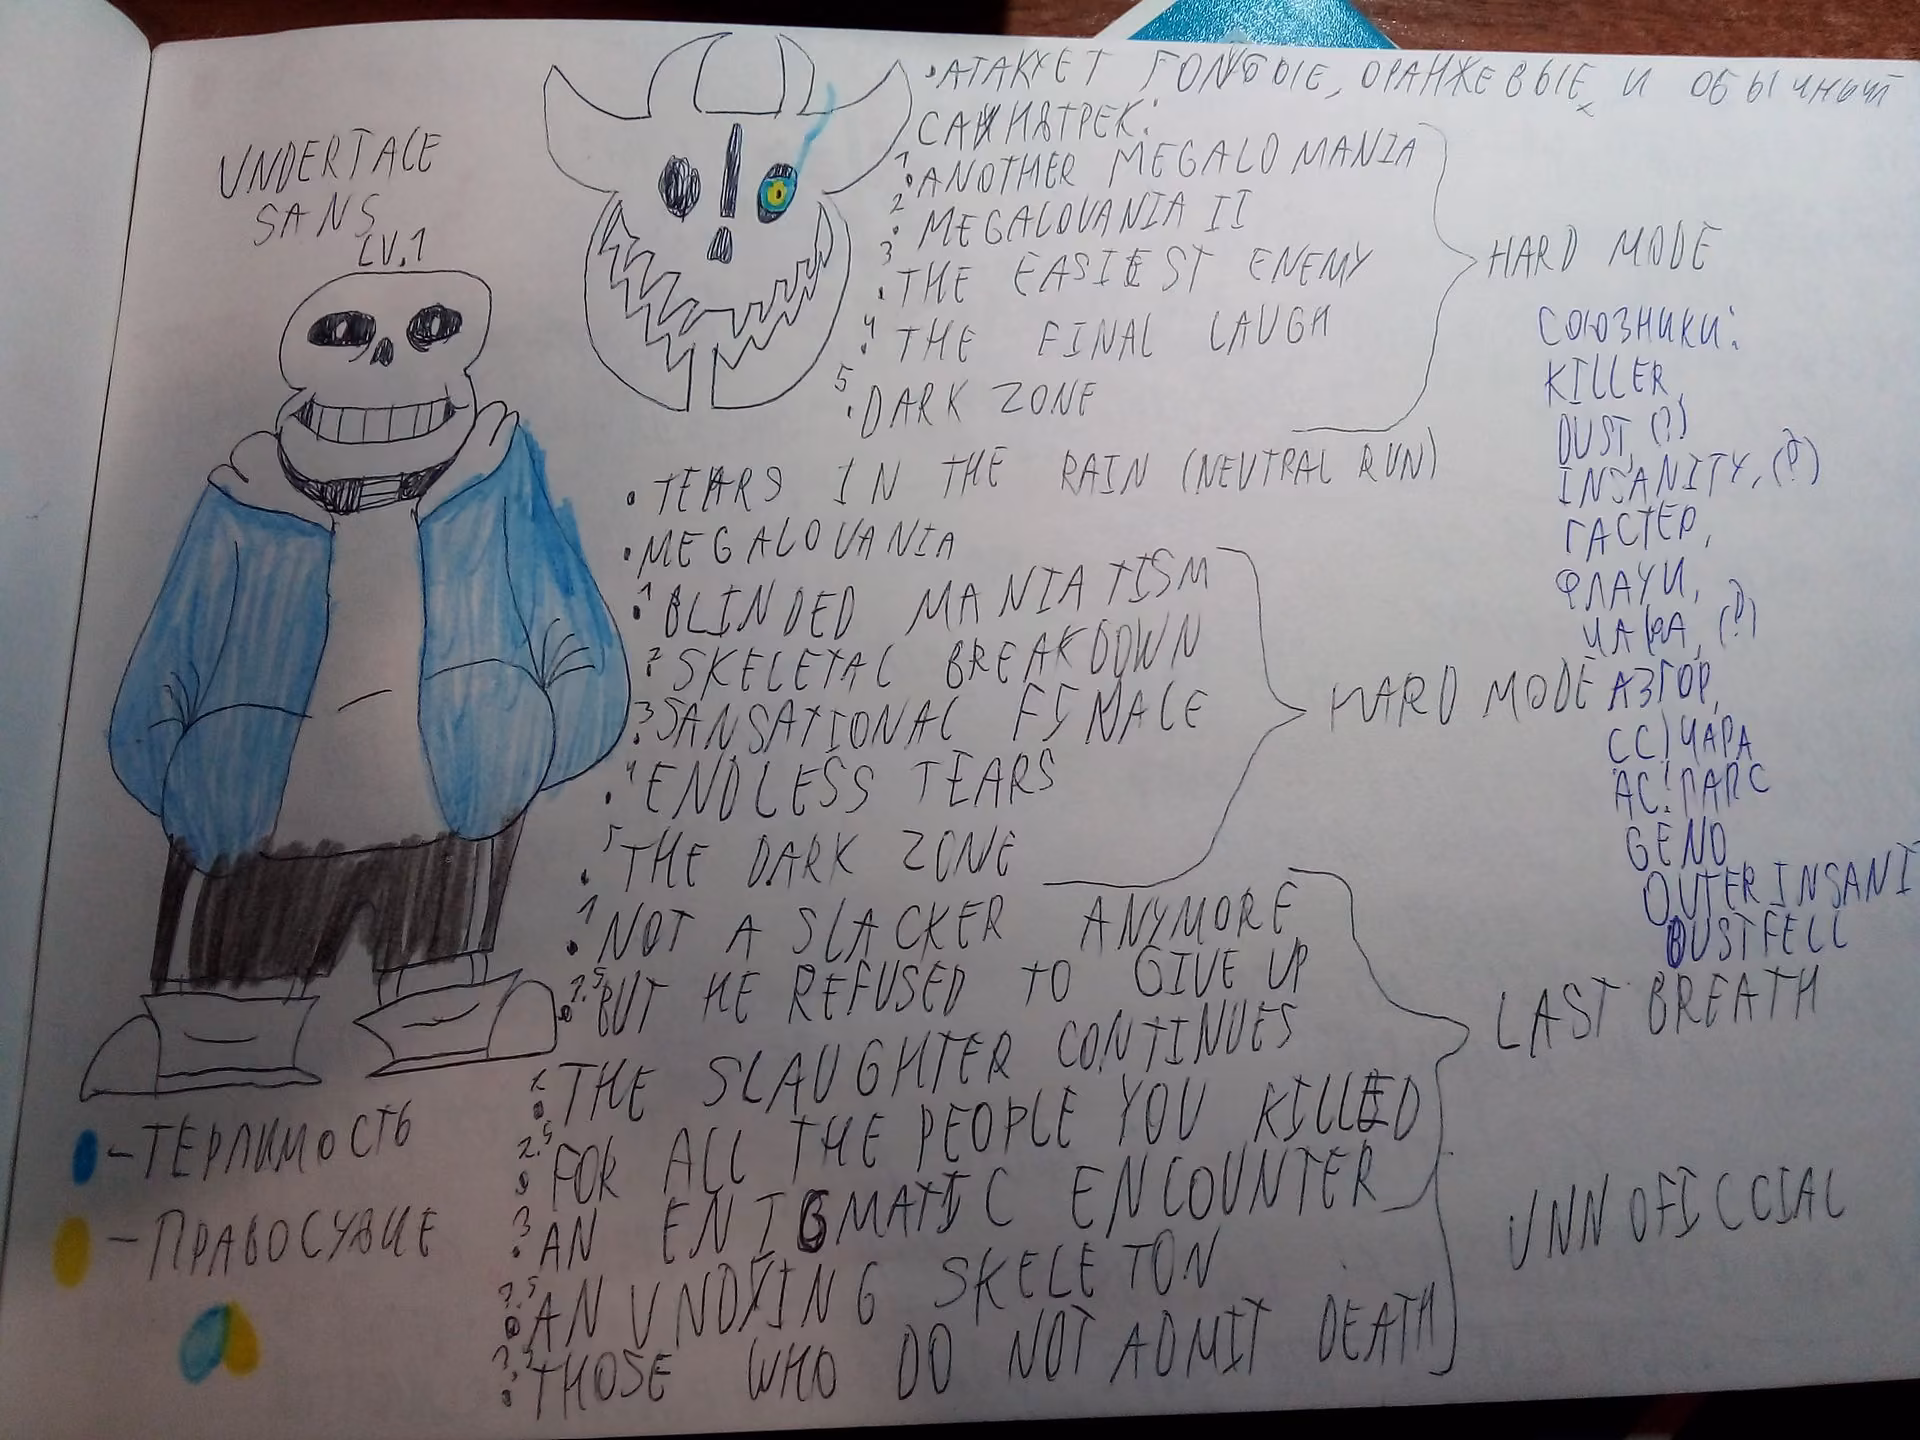 UNDERTALE
SANS
LV.1
АТАКУЕТ ГОЛУБЫЕ, ОРАНЖЕВЫЕ, И ОБЫЧНЫЙ
САУНДТРЕК:
1 ANOTHER MEGALOMANIA
2 MEGALOVANIA II
3 THE EASIEST ENEMY
4 THE FINAL LAUGH
5 DARK ZONE
HARD MODE
TEARS IN THE RAIN (NEUTRAL RUN)
MEGALOVANIA
1 BLINDED MANIATISM
2 SKELETAL BREAKDOWN
3 SANSATIONAL FINALE
4 ENDLESS TEARS
5 THE DARK ZONE
HARD MODE
1 NOT A SLACKER ANYMORE
1.5 BUT HE REFUSED TO GIVE UP
2 THE SLAUGHTER CONTINUES
2.5 FOR ALL THE PEOPLE YOU KILLED
3 AN ENIGMATIC ENCOUNTER
LAST BREATH
3.5 AN UNDYING SKELETON
THOSE WHO DO NOT ADMIT DEATH
UNNOFICCIAL
СОЮЗНИКИ:
KILLER,
DUST, (?)
INSANITY, (?)
ГАСТЕР,
ФЛАУИ,
ЧАРА, (?)
АЗГОР,
СС! ЧАРА
АС! ПАПС
GENO
OUTER INSANI
DUSTFELL
-ТЕРПИМОСТЬ
-ПРАВОСУДИЕ